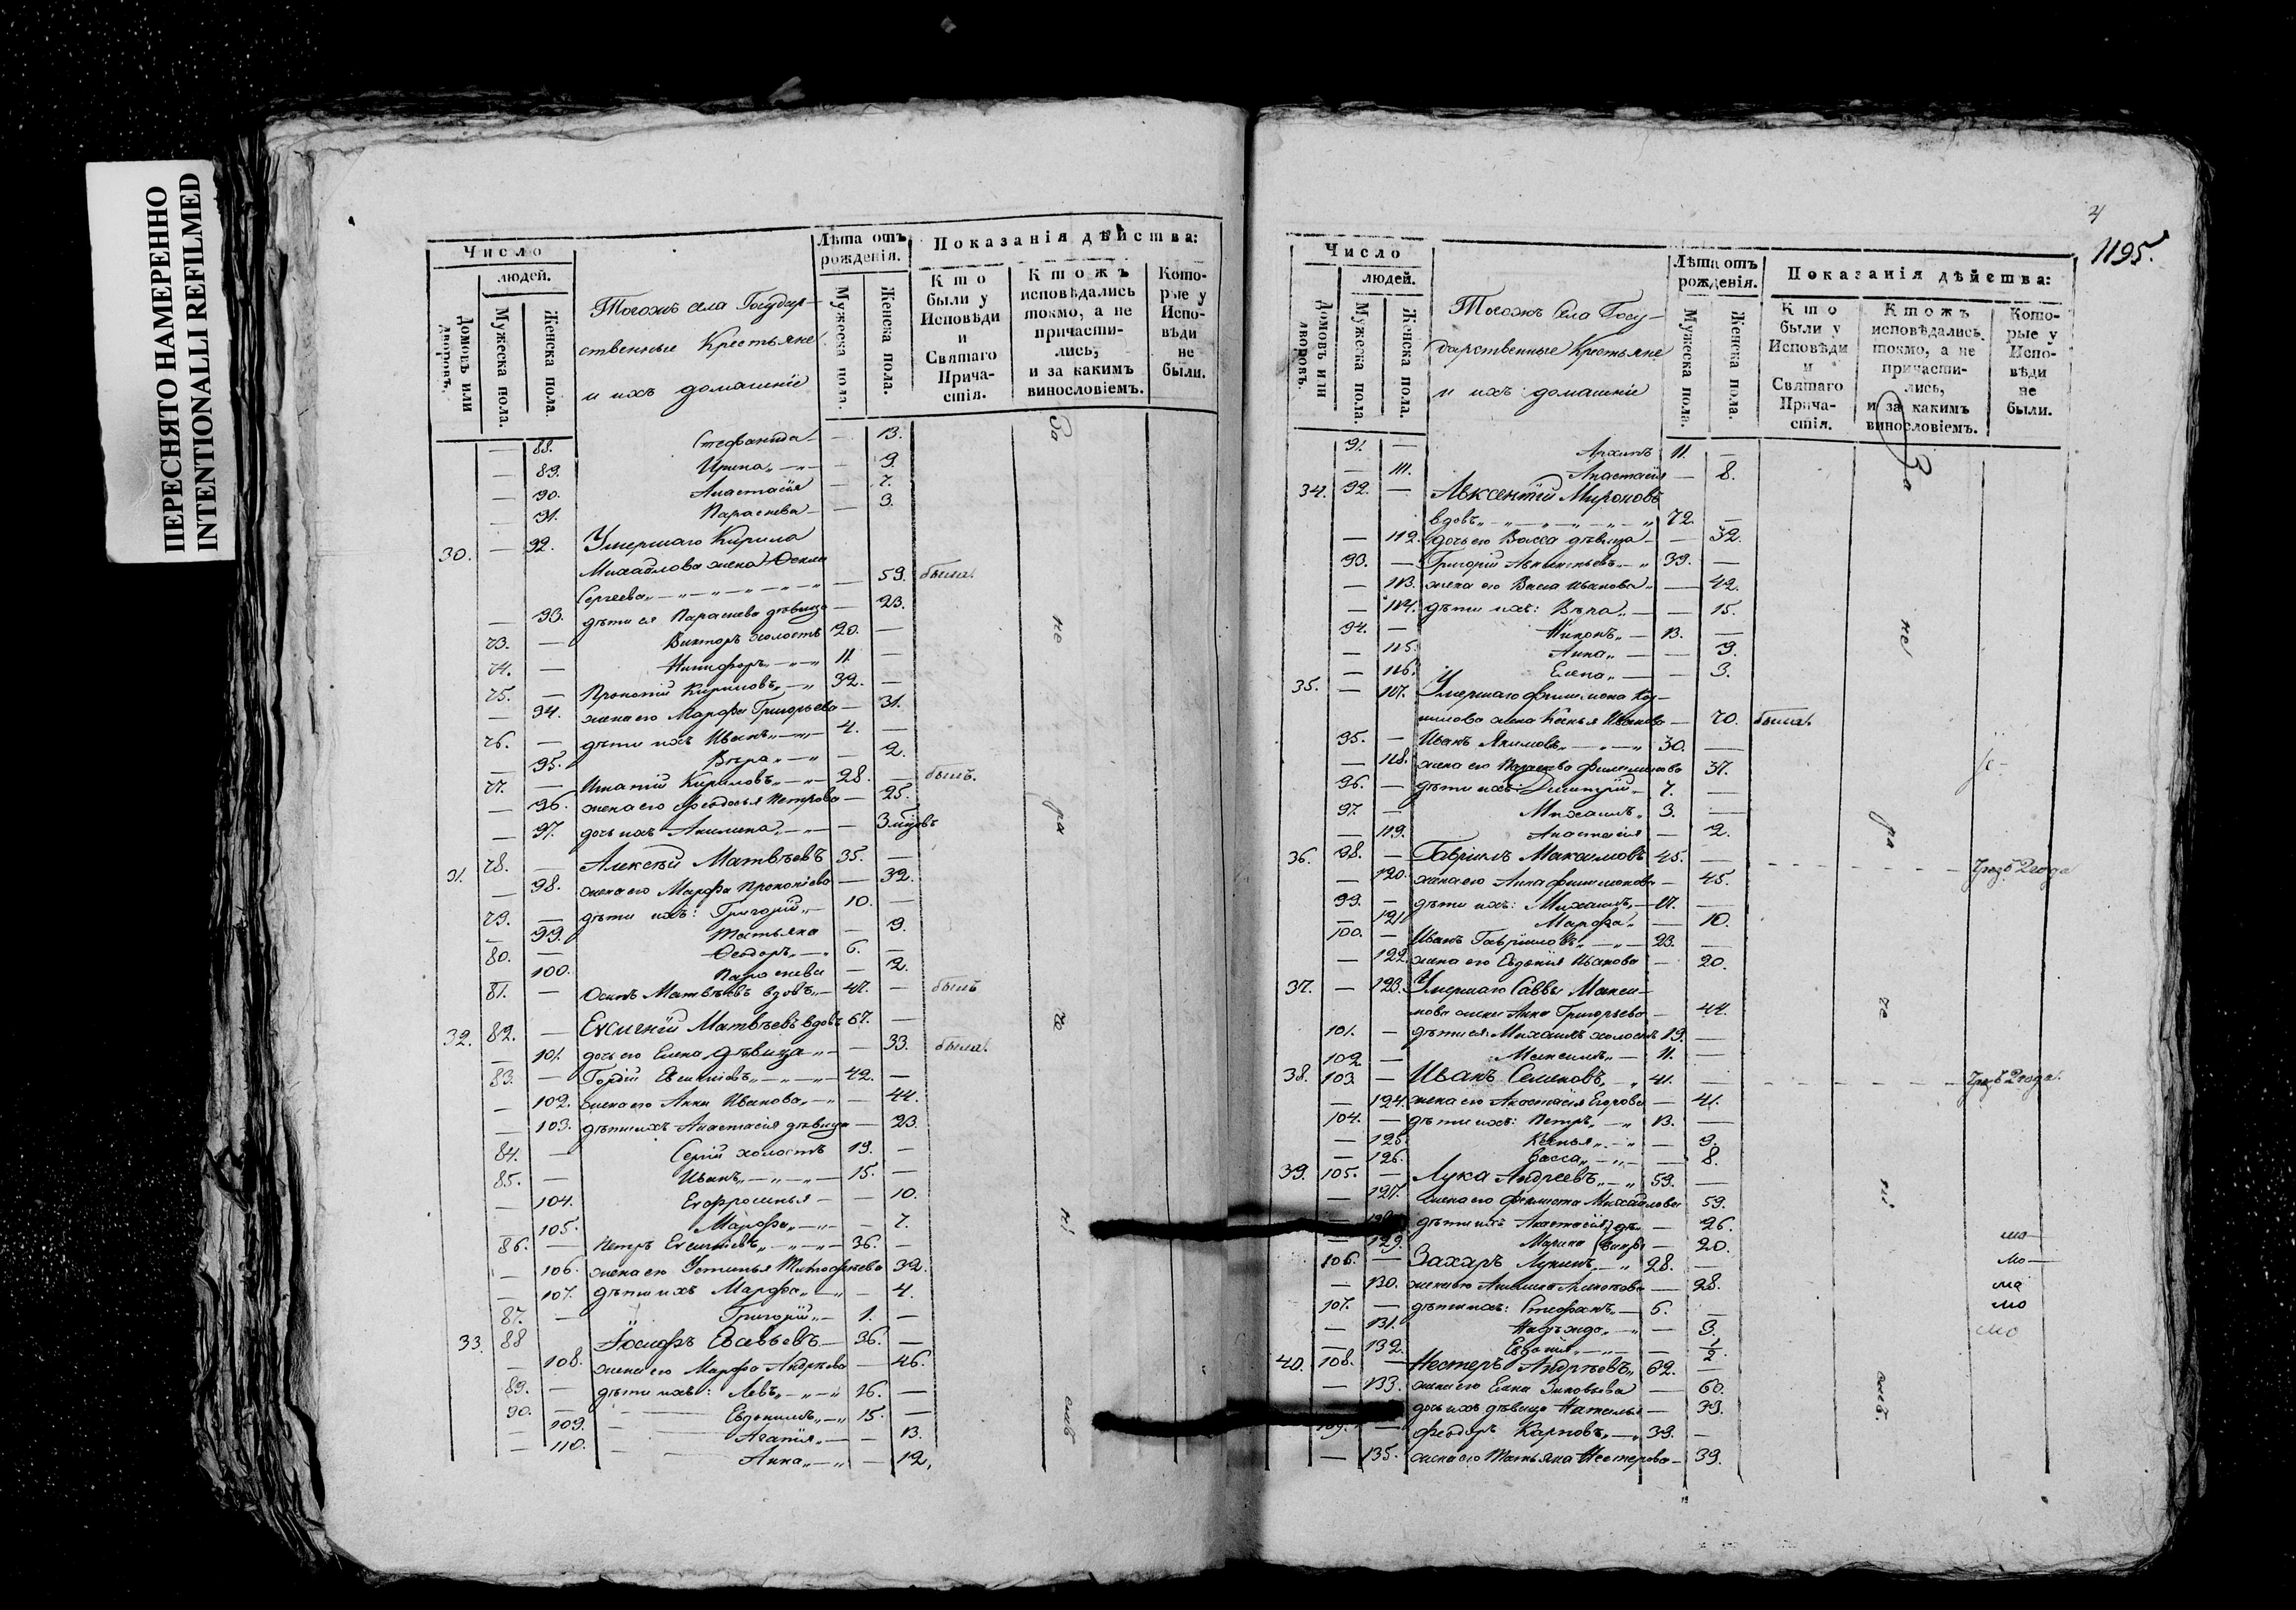 ПЕРЕСНЯТО НАМЕРЕННО
INTENTIONALLI REFILMED
Число
людей.
Домовъ или дворовъ.
Мужеска пола.
Женска пола.
Тогожъ села Государ-
ственные Крестьяне
и ихъ домашніе
Лѣта отъ рожденія.
Мужеска пола.
Женска пола.
Показанія дѣйства:
Кто были у Исповѣди и Святаго Прича-стія.
Ктожъ исповѣдались токмо, а не причасти-лись, и за какимъ винословіемъ.
Кото-рые у Испо-вѣди не были.
— 88. Стефанида — 13.
— 89. Ирина — 9.
— 90. Анастасія — 7.
— 91. Параскева — 3.
30. — 92. Умершаго Кирила
Михайлова жена Ѳекла
Сергеева — 59. была.
— 93. дѣти ея Параскева дѣвица — 23.
73. — Викторъ холостъ 20. —
74. — Никифоръ 11 —
75. — Прокопій Кириловъ 32. —
— 94. жена его Марфа Григорьева — 31.
76. — дѣти ихъ Иванъ 4. —
— 95. Вѣра — 2.
77. — Игнатій Кириловъ 28. — былъ.
— 96. жена его Ѳеодосья Петрова — 25.
— 97. дочь ихъ Акилина — 3 мцовъ
31. 78. — Алексѣй Матвѣевъ 35. —
— 98. жена его Марфа Прокопіева — 32.
79. — дѣти ихъ: Григорій 10. —
— 99. Татьяна — 9.
80. — Ѳеодоръ 6. —
100. Параскева — 2.
81. — Осипъ Матвѣевъ вдовъ 47. — былъ
32. 82. — Евсигній Матвѣевъ вдовъ 67. —
— 101. дочь его Елена дѣвица — 33. была.
83. — Гордій Евсигніевъ 42. —
— 102. жена его Анна Иванова — 44.
— 103. дѣти ихъ Анастасія дѣвица — 23.
84. — Сергій холостъ 19. —
85. — Иванъ 15. —
104. Евфросинья — 10.
— 105. Марфа — 7.
86. — Петръ Евсигніевъ 36. —
— 106. жена его Устинья Тимофѣева 32.
— 107. дѣти ихъ Марфа — 4.
87. — Григорій 1. —
33. 88 Іосифъ Савельевъ 36. —
— 108. жена его Марфа Андрѣева — 46.
89. — дѣти ихъ: Левъ 16. —
90. — Евдокимъ 15. —
— 109. Агапія — 13.
— 110. Анна — 12.
За
не
ра
че
ні
емъ
4
1195.
Число
людей.
Домовъ или дворовъ.
Мужеска пола.
Женска пола.
Тогожъ Села Госу-
дарственные Крестьяне
и ихъ домашніе
Лѣта отъ рожденія.
Мужеска пола.
Женска пола.
Показанія дѣйства:
Кто были у Исповѣди и Святаго Прича-стія.
Ктожъ исповѣдались токмо, а не причасти-лись, и за какимъ винословіемъ.
Кото-рые у Испо-вѣди не были.
91. — Архипъ 11. —
— 111. Анастасія — 8.
34. 92. — Авксентій Мироновъ
вдовъ 72. —
— 112. дочь его Васса дѣвица — 32.
93. — Григорій Авксентьевъ 39. —
— 113. жена его Васса Иванова — 42.
— 114. дѣти ихъ: Вѣра — 15.
94. — Никонъ 13. —
— 115. Анна — 9.
— 116. Елена — 3.
35. — 117. Умершаго Филимона
жена Ксенья Иванова — 70. была.
95. — Иванъ Якимовъ 30. —
— 118. жена его Параскева Филимонова 37.
96. — дѣти ихъ: Димитрій 7. —
97. — Михаилъ 3. —
— 119. Анастасія — 2.
36. 98. — Гавріилъ Максимовъ 45. — Чрезъ 2 года
— 120. жена его Анна Филимонова — 45.
99. — дѣти ихъ: Михаилъ 17. —
— 121 Марфа — 10.
100. — Иванъ Гавріиловъ 23. —
— 122. жена его Евдокія Иванова — 20.
37. — 123. Умершаго Саввы Макси-
мова жена Анна Григорьева — 44.
101. — дѣти ея: Михаилъ холостъ 19. —
102 — Максимъ 11. —
38. 103. — Иванъ Семеновъ 41. — Чрезъ 2 года.
— 124. жена его Анастасія Егорова — 41.
104. — дѣти ихъ: Петръ 13. —
— 125. Ксенья — 9.
— 126. Васса — 8.
39. 105. — Лука Андреевъ 59. —
— 127. жена его Михайлова 59.
дѣти ихъ Анастасія дѣ- — 26.
— 129. Марина вицы — 20.
106. — Захаръ Лукинъ 28. —
— 130. жена его — 28.
107. — дѣти ихъ: Стефанъ 6. —
— 131. Надежда — 3.
— 132. Евдокія — 1/2
40. 108. — Нестеръ Андрѣевъ 62. —
— 133. жена его Елена Зиновьева — 60.
дочь ихъ дѣвица Наталья — 33.
109. — Ѳеодоръ Карповъ 39. —
— 135. жена его Татьяна Нестерова — 39.
За
не
ра
че
ні
емъ.